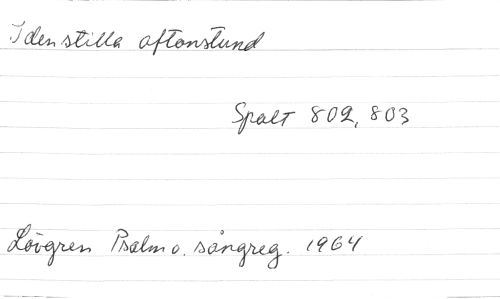 I den stilla aftonstund
Spalt 802, 803
Lövgren Psalm o. sångreg. 1964